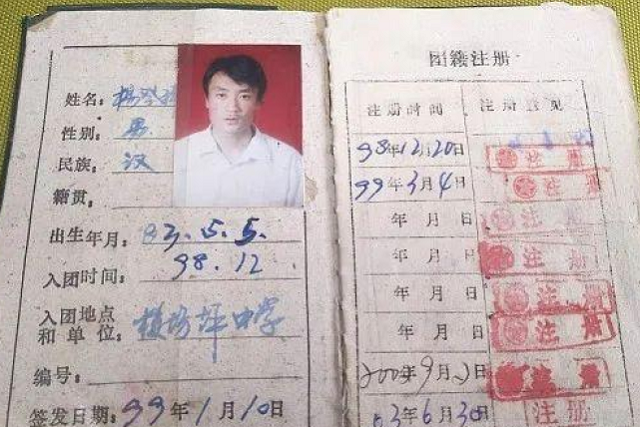 姓名：杨
性别：男
民族：汉
籍贯：
出生年月：83.5.5.
入团时间：98.12
入团地点
和单位：坪中学
编号：
签发日期：99年1月10日
团籍注册
注册时间 注册意见
98年12月20日 注册
99年3月4日 注册
年 月 日 注册
年 月 日 注册
年 月 日 注册
年 月 日 注册
年9月2日 注册
03年6月30日 注册